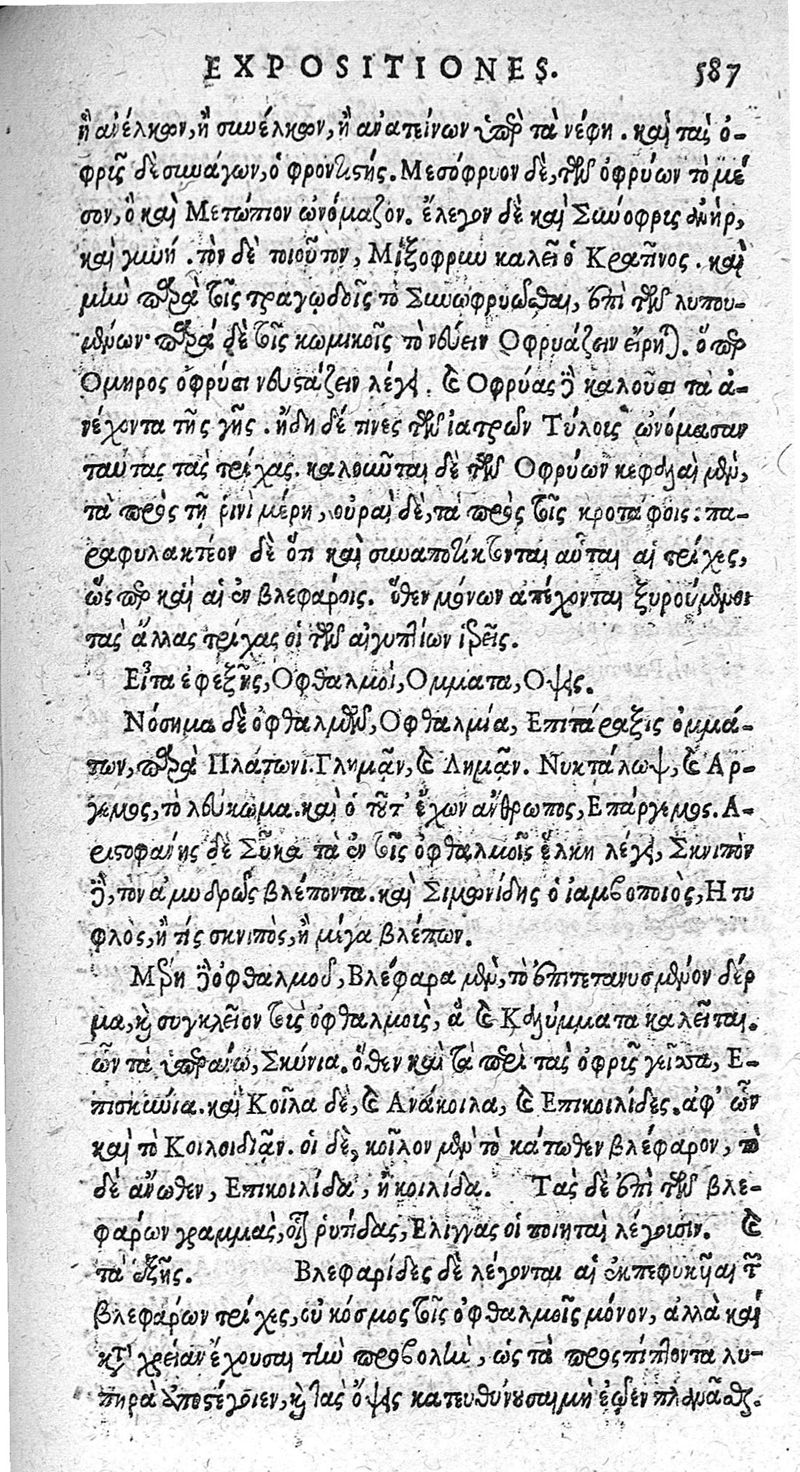 EXPOSITIONES. 587
ἢ ἀνέλκων, ἢ συνέλκων, ἢ ἀνατείνων ὑπὲρ τὰ νέφη. καὶ τὰς ὀ-
φρῖς δὲ συνάγων, ὁ φροντιστής. Μεσόφρυον δὲ, τῶν ὀφρύων τὸ μέ
σον, ὃ καὶ Μετώπιον ὠνόμαζον. ἔλεγον δὲ καὶ Σύνοφρις ἀνὴρ,
καὶ γυνή. τὸν δὲ τοιοῦτον, Μιξόφρυν καλεῖ ὁ Κρατῖνος. καὶ
μὴν παρὰ τοῖς τραγῳδοῖς τὸ Συνωφρυῶσθαι, ἐπὶ τῶν λυπου-
μένων· παρὰ δὲ τοῖς κωμικοῖς τὸ νεύειν Ὀφρυάζειν εἴρηται. ὅπερ
Ὅμηρος ὀφρύσι νευστάζειν λέγει. καὶ Ὀφρύας δὲ καλοῦσι τὰ ἀ-
νέχοντα τῆς γῆς. ἤδη δέ τινες τῶν ἰατρῶν Τύλοις ὠνόμασαν
ταύτας τὰς τρίχας. καλοῦνται δὲ τῶν Ὀφρύων κεφαλαὶ μὲν,
τὰ πρὸς τῇ ῥινὶ μέρη, οὐραὶ δὲ, τὰ πρὸς τοῖς κροτάφοις: πα-
ραφυλακτέον δὲ ὅτι καὶ συναποτίκτονται αὗται αἱ τρίχες,
ὥσπερ καὶ αἱ ἐν βλεφάροις. ὅθεν μόνων ἀπέχονται ξυρούμενοι
τὰς ἄλλας τρίχας οἱ τῶν αἰγυπτίων ἱερεῖς.
Εἶτα ἐφεξῆς, Ὀφθαλμοί, Ὄμματα, Ὄψεις.
Νόσημα δὲ ὀφθαλμῶν, Ὀφθαλμία, Ἐπιτάραξις ὀμμά-
των, παρὰ Πλάτωνι. Γλημᾷν, καὶ Λημᾷν. Νυκτάλωψ, καὶ Ἄρ-
γεμος, τὸ λεύκωμα. καὶ ὁ τοῦτ' ἔχων ἄνθρωπος, Ἐπάργεμος. Ἀ-
ριστοφάνης δὲ Σῦκα τὰ ἐν τοῖς ὀφθαλμοῖς ἕλκη λέγει, Σκνιπὸν
δὲ, τὸν ἀμυδρῶς βλέποντα. καὶ Σιμωνίδης ὁ ἰαμβοποιὸς, Ἢ τυ
φλὸς, ἤ τις σκνιπὸς, ἢ μέγα βλέπων.
Μέρη δὲ ὀφθαλμοῦ, Βλέφαρα μὲν, τὸ ἐπιτετανυσμένον δέρ
μα, καὶ συγκλεῖον τοὺς ὀφθαλμοὺς, ἃ καὶ Καλύμματα καλεῖται.
ὧν τὰ ὑπεράνω, Σκύνια. ὅθεν καὶ τὰ περὶ τὰς ὀφρῖς γεῖσα, Ἐ-
πισκύνια. καὶ Κοῖλα δὲ, καὶ Ἀνάκοιλα, καὶ Ἐπικοιλίδες. ἀφ' ὧν
καὶ τὸ Κοιλοιδιᾷν. οἱ δὲ, κοῖλον μὲν τὸ κάτωθεν βλέφαρον, τὸ
δὲ ἄνωθεν, Ἐπικοιλίδα, ἢ κοιλίδα. Τὰς δὲ ἐπὶ τῶν βλε-
φάρων γραμμὰς, οἷον ῥυτίδας, Ἕλιγγας οἱ ποιηταὶ λέγουσιν. καὶ
τὰ ἑξῆς. Βλεφαρίδες δὲ λέγονται αἱ ἐκπεφυκῆαι τῶν
βλεφάρων τρίχες, οὐ κόσμος τοῖς ὀφθαλμοῖς μόνον, ἀλλὰ καὶ
κατὰ χρείαν ἔχουσαι τὴν προβολὴν, ὡς τὰ προσπίπτοντα λυ-
πηρὰ ἀποστέγοιεν, καὶ τὰς ὄψεις κατευθύνουσαι μὴ ἐῷεν πλανᾶσθαι.